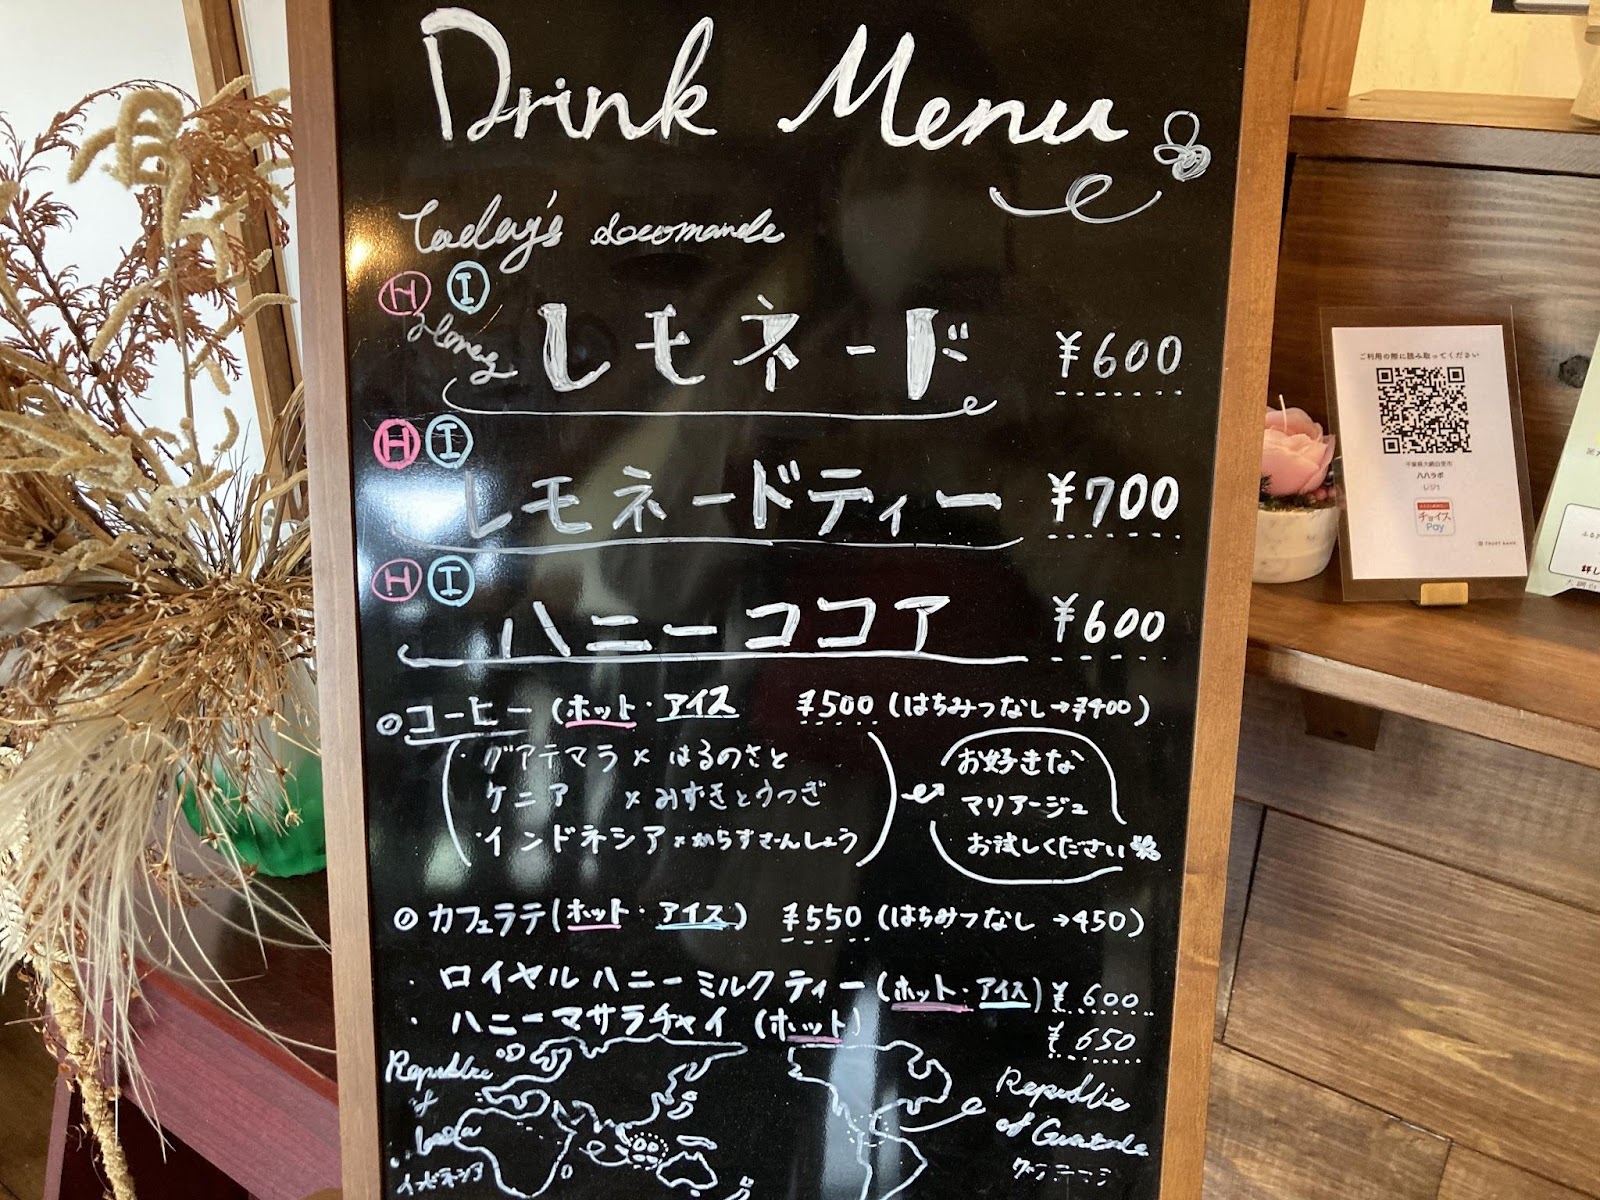 Drink Menu
Today's
H I
Honey レモネード ¥600
H I
レモネードティー ¥700
H I
ハニーココア ¥600
コーヒー (ホット・アイス ¥500 (はちみつなし→¥400)
・グアテマラ × はるのさと
ケニア × みずきとうつぎ
・インドネシア × からすざんしょう
お好きな
マリアージュ
お試しください
カフェラテ(ホット・アイス) ¥550 (はちみつなし →450)
・ロイヤルハニーミルクティー(ホット・アイス) ¥600
・ハニーマサラチャイ (ホット) ¥650
Republic
of
インドネシア
Republic
of
ご利用の際に読み取ってください
千葉県大網白里市
ハハラボ
レジ1
チョイス
Pay
TRUST BANK